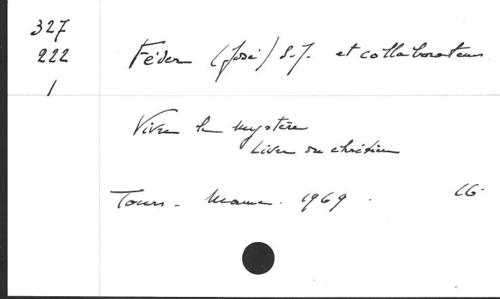 327
222
1
Féder (José) S.J. et collaborateurs
Vivre le mystère
Livre du chrétien
Tours - Mame. 1969. 16°